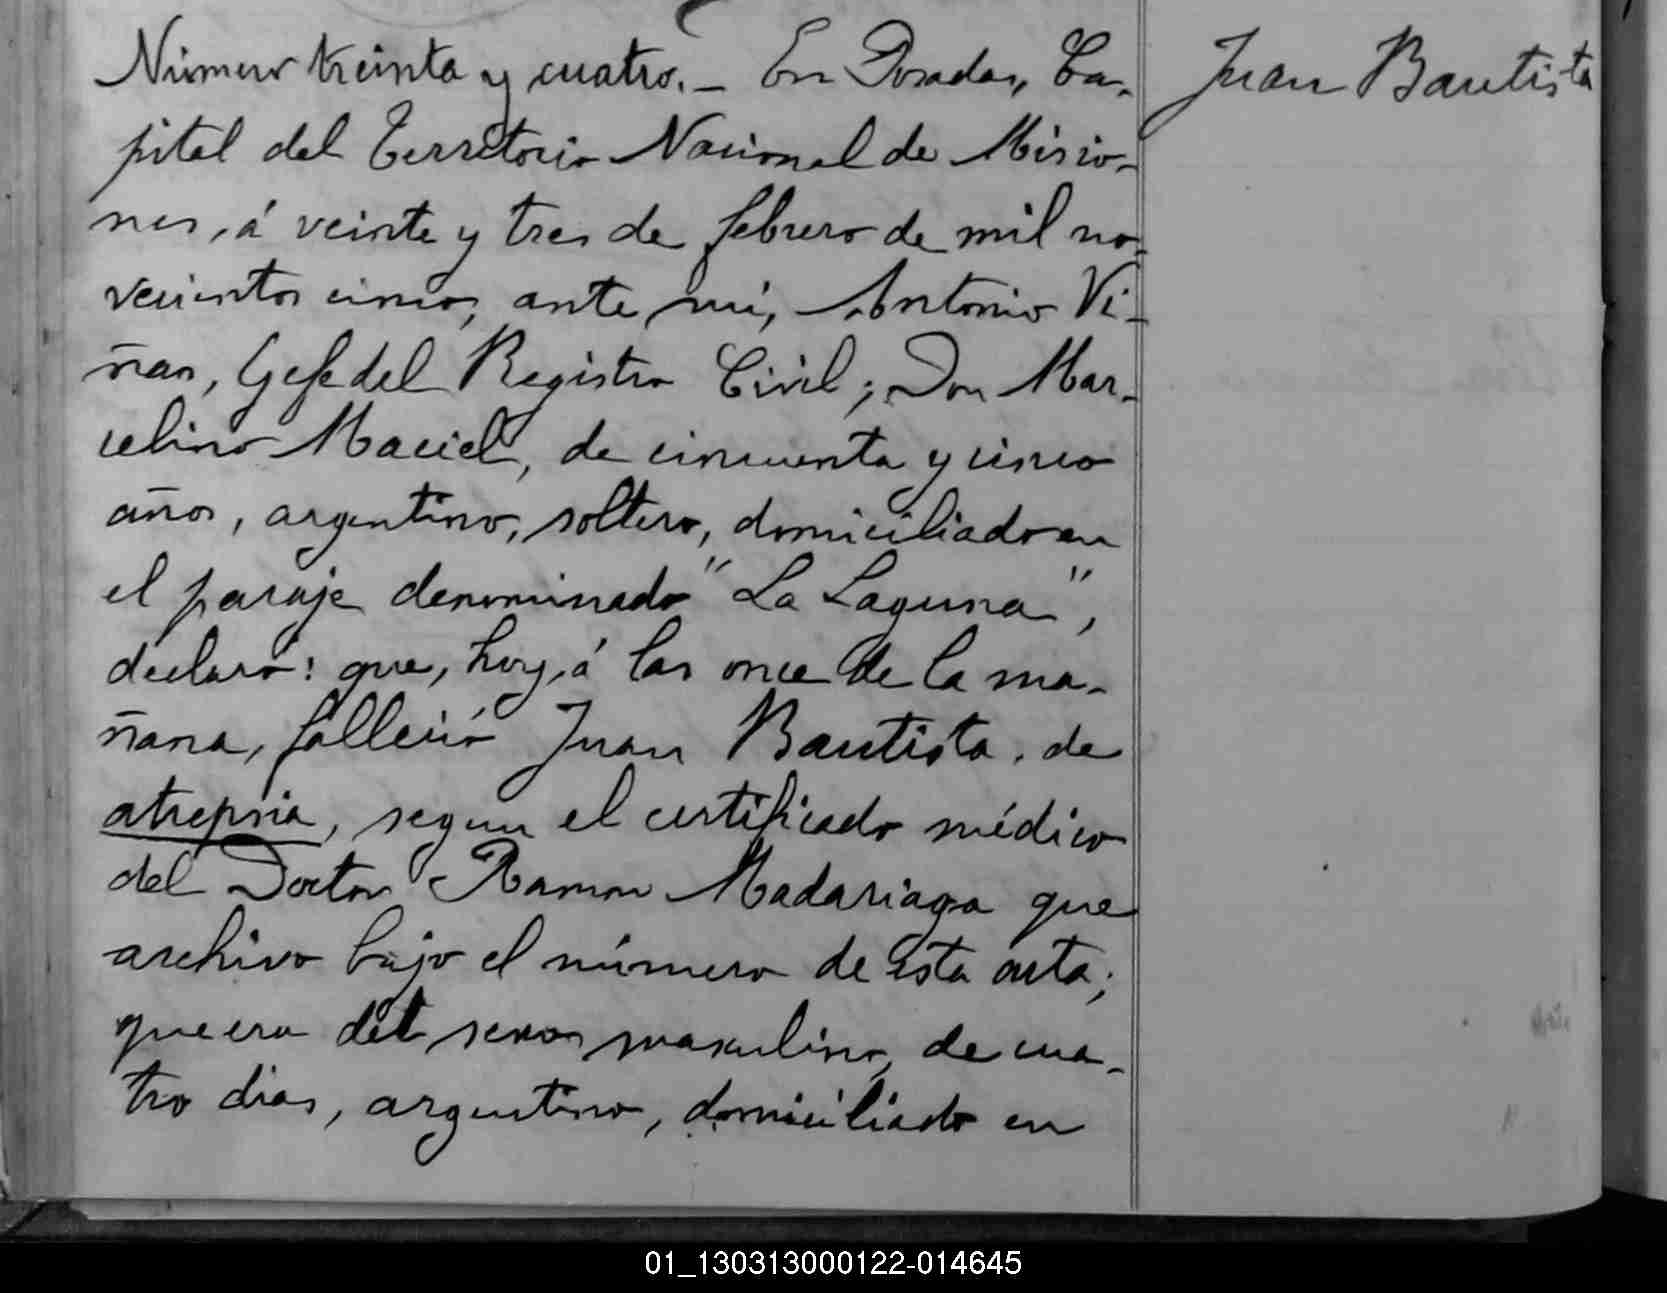 Número treinta y cuatro.— En Posadas, Ca-
pital del Territorio Nacional de Misio-
nes, á veinte y tres de febrero de mil no-
vecientos cinco, ante mí, Antonio Vi-
ñas, Gefe del Registro Civil; Don Mar-
celino Maciel, de cincuenta y cinco
años, argentino, soltero, domiciliado en
el paraje denominado "La Laguna",
declaro: que, hoy, á las once de la ma-
ñana, falleció Juan Bautista, de
atrepsia, segun el certificado médico
del Doctor Ramon Madariaga que
archivo bajo el número de esta acta;
que era del sexo masculino, de cua-
tro dias, argentino, domiciliado en
Juan Bautista
01_130313000122-014645